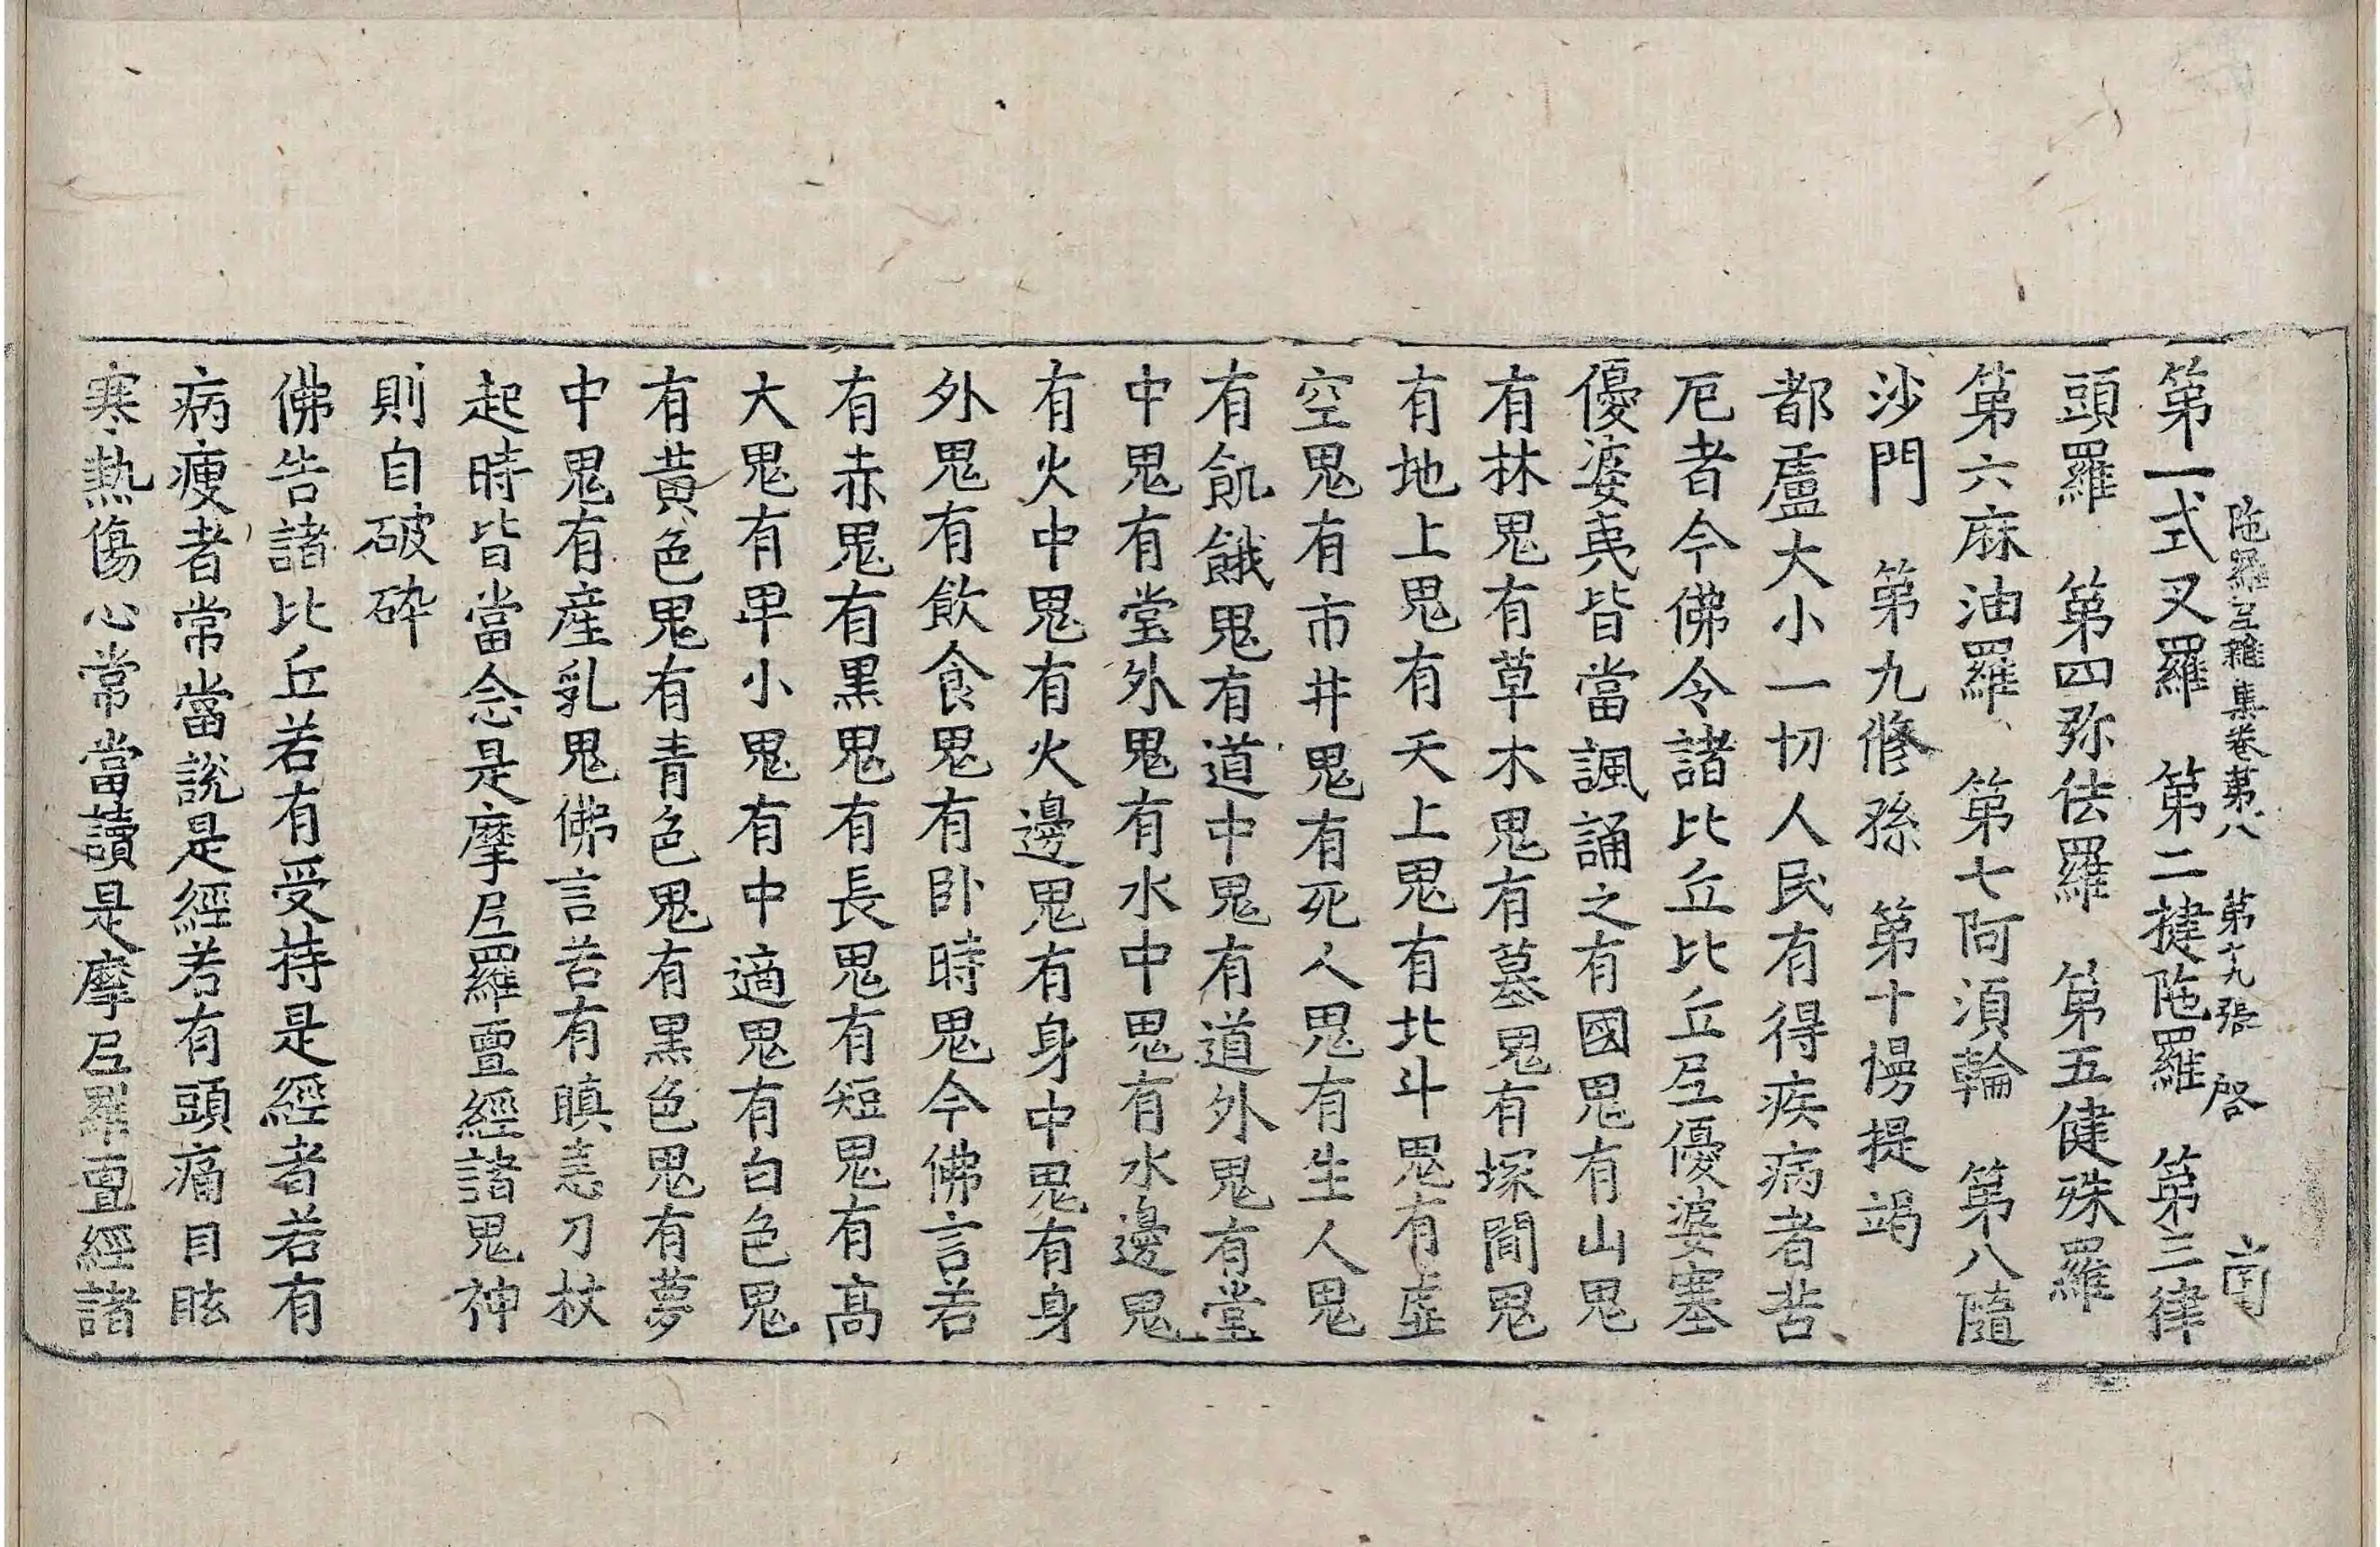 陁羅尼雜集卷第八 第十九張 啓
第一式叉羅 第二揵陁羅 第三律
頭羅 第四弥佉羅 第五健殊羅
第六麻油羅 第七阿湏輪 第八隨
沙門 第九修孫 第十慢提竭
都盧大小一切人民有得疾病者苦
厄者今佛令諸比丘比丘尼優婆塞
優婆夷皆當諷誦之有國鬼有山鬼
有林鬼有草木鬼有墓鬼有塚間鬼
有地上鬼有天上鬼有北斗鬼有虛
空鬼有市井鬼有死人鬼有生人鬼
有飢餓鬼有道中鬼有道外鬼有堂
中鬼有堂外鬼有水中鬼有水邊鬼
有火中鬼有火邊鬼有身中鬼有身
外鬼有飲食鬼有卧時鬼今佛言若
有赤鬼有黑鬼有長鬼有短鬼有高
大鬼有卑小鬼有中適鬼有白色鬼
有黃色鬼有青色鬼有黑色鬼有夢
中鬼有産乳鬼佛言若有瞋恚刀杖
起時皆當念是摩尼羅亶經諸鬼神
則自破碎
佛告諸比丘若有受持是經者若有
病瘦者常當說是經若有頭痛目眩
寒熱傷心常當讀是摩尼羅亶經諸